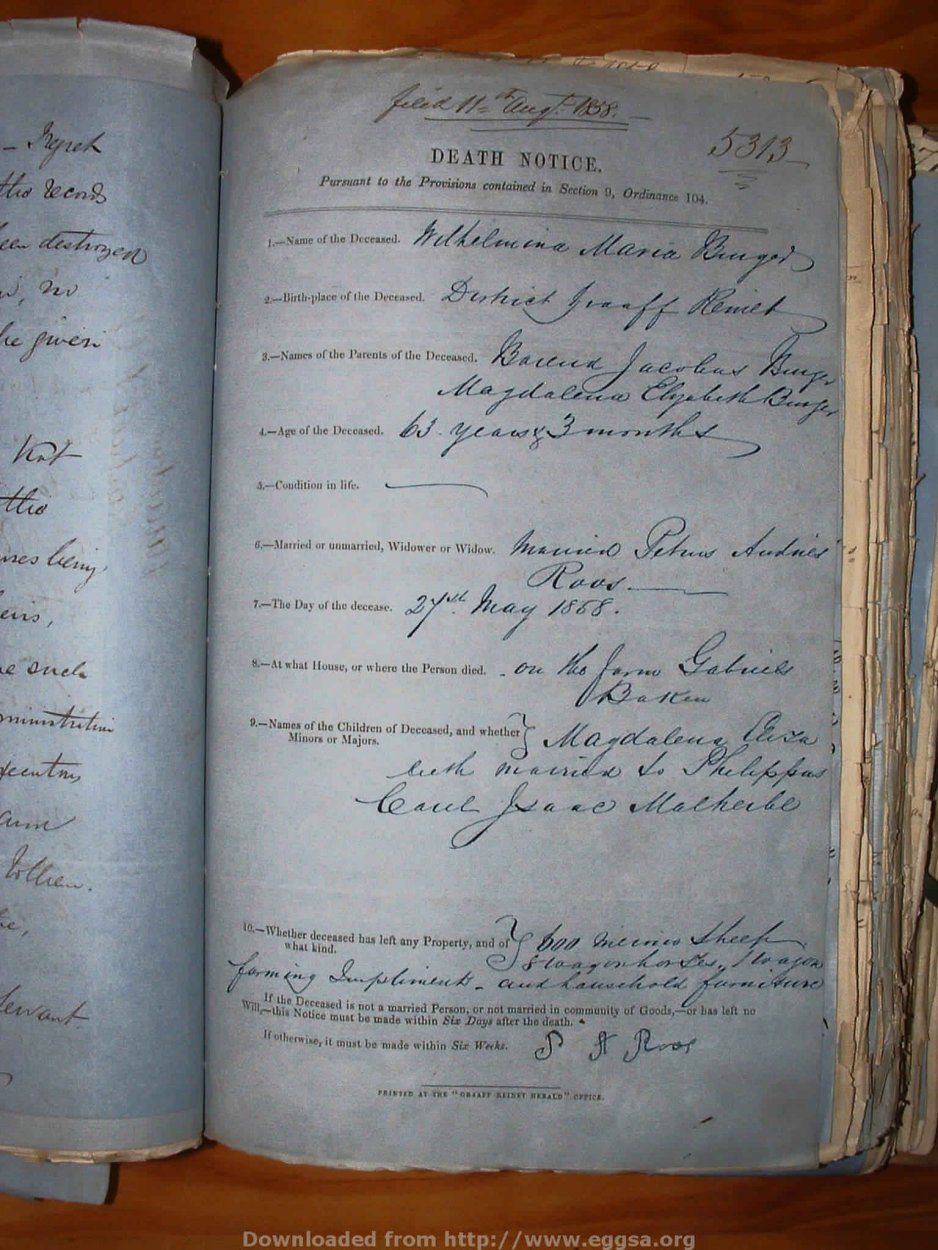 – Regret
the records
been destroyed
no
be given
Not
the
being
such
Servant
filed 11th Augt. 1858.
5313
DEATH NOTICE.
Pursuant to the Provisions contained in Section 9, Ordinance 104.
1.—Name of the Deceased. Wilhelmina Maria Burger
2.—Birth-place of the Deceased. District Graaff Reinet
3.—Names of the Parents of the Deceased. Barend Jacobus Burger
Magdalena Elizabeth Burger
4.—Age of the Deceased. 63 years & 3 months
5.—Condition in life. ——
6.—Married or unmarried, Widower or Widow. Married Petrus Andries
Roos.—
7.—The Day of the decease. 27th. May 1858.
8.—At what House, or where the Person died. on the farm Gabriels
Baken
9.—Names of the Children of Deceased, and whether } Magdalena Eliza
Minors or Majors.
beth married to Philippus
Carel Isaac Malherbe
10.—Whether deceased has left any Property, and of } 600 merino sheep
what kind. 8 wagon horses, 1 wagon
farming Impliments - and household furniture
If the Deceased is not a married Person, or not married in community of Goods,—or has left no
Will,—this Notice must be made within Six Days after the death.
If otherwise, it must be made within Six Weeks. P A Roos
PRINTED AT THE "GRAAFF REINET HERALD" OFFICE.
Downloaded from http://www.eggsa.org